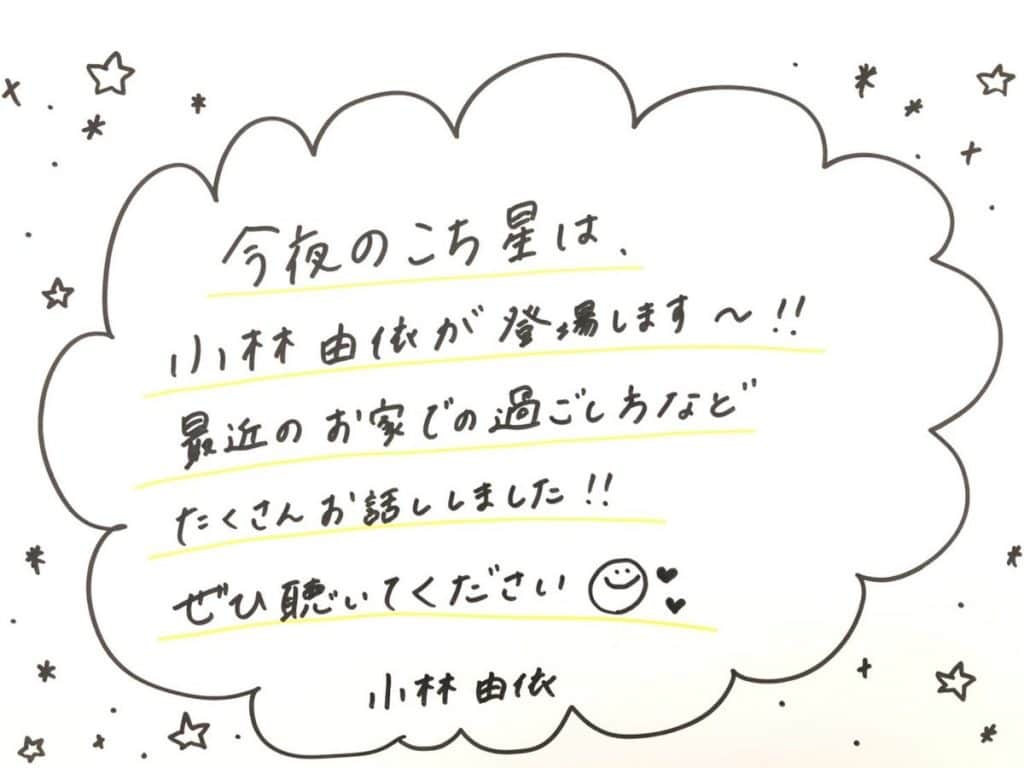 今夜のこち星は、
小林由依が登場します〜!!
最近のお家での過ごしかたなど
たくさんお話ししました!!
ぜひ聴いてください
小林由依